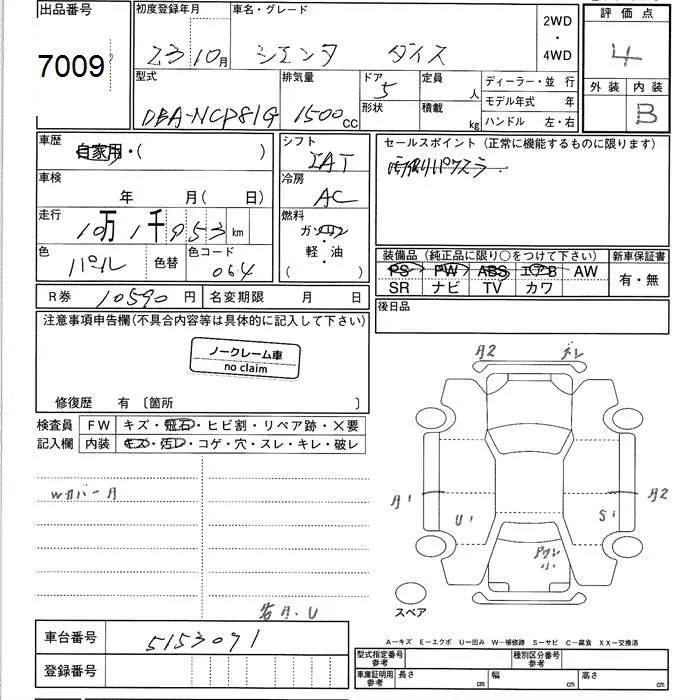 出品番号
7009
初度登録年月
23 10月
車名・グレード
シエンタ ダイス
2WD
・
4WD
評価点
4
外装 内装
B
型式
DBA-NCP81G
排気量
1500cc
ドア
5
形状
定員
人
積載
kg
ディーラー・並 行
モデル年式 年
ハンドル 左・右
車歴
自家用・( )
シフト
IAT
冷房
AC
燃料
ガソリン
・
軽・油
( )
車検
年 月( 日)
走行
10万1千953km
色
パール
色替
色コード
064
R券 10590円
名変期限 月 日
セールスポイント(正常に機能するものに限ります)
装備品(純正品に限り○をつけて下さい)
PS PW ABS エアB AW
SR ナビ TV カワ
新車保証書
有・無
後日品
注意事項申告欄(不具合内容等は具体的に記入して下さい)
ノークレーム車
no claim
修復歴 有 〔箇所 〕
検査員
記入欄
FW キズ・飛石・ヒビ割・リペア跡・×要
内装 キズ・汚レ・コゲ・穴・スレ・キレ・破レ
WカバーA
A2
A1
U1
S1
A2
スペア
A-キズ E-エクボ U-凹み W-補修跡 S-サビ C-腐食 XX-交換済
車台番号 5153071
登録番号
型式指定番号
参考
種別区分番号
参考
車庫証明用
参考
長さ cm
幅 cm
高さ cm